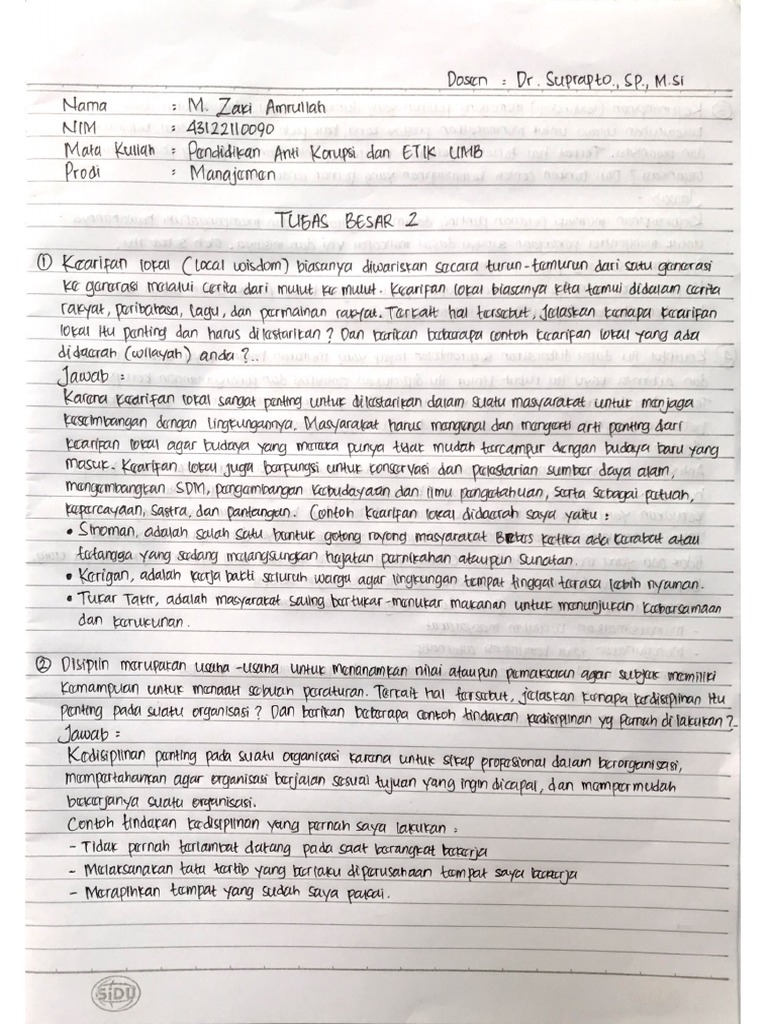 Dosen : Dr. Suprapto., SP., M.Si
Nama : M. Zaki Amrullah
NIM : 43122110090
Mata Kuliah : Pendidikan Anti Korupsi dan ETIK UMB
Prodi : Manajemen
TUGAS BESAR 2
① Kearifan lokal (local wisdom) biasanya diwariskan secara turun-temurun dari satu generasi
ke generasi melalui cerita dari mulut ke mulut. Kearifan lokal biasanya kita temui didalam cerita
rakyat, peribahasa, lagu, dan permainan rakyat. Terkait hal tersebut, jelaskan kenapa kearifan
lokal itu penting dan harus dilestarikan? Dan berikan beberapa contoh kearifan lokal yang ada
didaerah (wilayah) anda?..
Jawab :
Karena kearifan lokal sangat penting untuk dilestarikan dalam suatu masyarakat untuk menjaga
keseimbangan dengan lingkungannya. Masyarakat harus mengenal dan mengerti arti penting dari
kearifan lokal agar budaya yang mereka punya tidak mudah tercampur dengan budaya baru yang
masuk. Kearifan lokal juga berfungsi untuk konservasi dan pelestarian sumber daya alam,
mengembangkan SDM, pengembangan kebudayaan dan ilmu pengetahuan, serta sebagai petuah,
kepercayaan, sastra, dan pantangan. Contoh kearifan lokal didaerah saya yaitu :
• Sinoman, adalah salah satu bentuk gotong royong masyarakat Brebes ketika ada kerabat atau
tetangga yang sedang melangsungkan hajatan pernikahan ataupun sunatan.
• Kerigan, adalah kerja bakti seluruh warga agar lingkungan tempat tinggal terasa lebih nyaman.
• Tukar Takir, adalah masyarakat saling bertukar-menukar makanan untuk menunjukan kebersamaan
dan kerukunan.
② Disiplin merupakan usaha-usaha untuk menanamkan nilai ataupun pemaksaan agar subjek memiliki
kemampuan untuk menaati sebuah peraturan. Terkait hal tersebut, jelaskan kenapa kedisiplinan itu
penting pada suatu organisasi? Dan berikan beberapa contoh tindakan kedisiplinan yg pernah di lakukan?..
Jawab :
Kedisiplinan penting pada suatu organisasi karena untuk sikap profesional dalam berorganisasi,
mempertahankan agar organisasi berjalan sesuai tujuan yang ingin dicapai, dan mempermudah
bekerjanya suatu organisasi.
Contoh tindakan kedisiplinan yang pernah saya lakukan :
- Tidak pernah terlambat datang pada saat berangkat bekerja
- Melaksanakan tata tertib yang berlaku diperusahaan tempat saya bekerja
- Merapihkan tempat yang sudah saya pakai.
SIDU